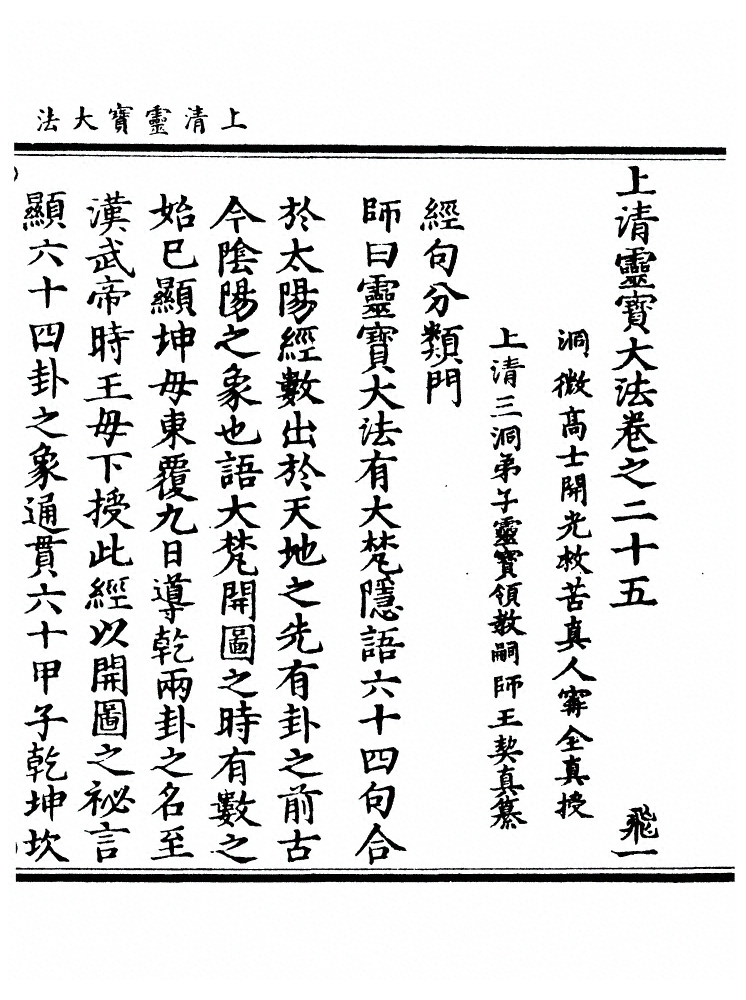 上清靈寶大法
上清靈寶大法卷之二十五 飛一
洞微高士開光救苦真人甯全真授
上清三洞弟子靈寶領教嗣師王契真纂
經句分類門
師曰靈寶大法有大梵隱語六十四句合
於太陽經數出於天地之先有卦之前古
今陰陽之象也語大梵開圖之時有數之
始巳顯坤母東覆九日導乾兩卦之名至
漢武帝時王母下授此經以開圖之祕言
顯六十四卦之象通貫六十甲子乾坤坎